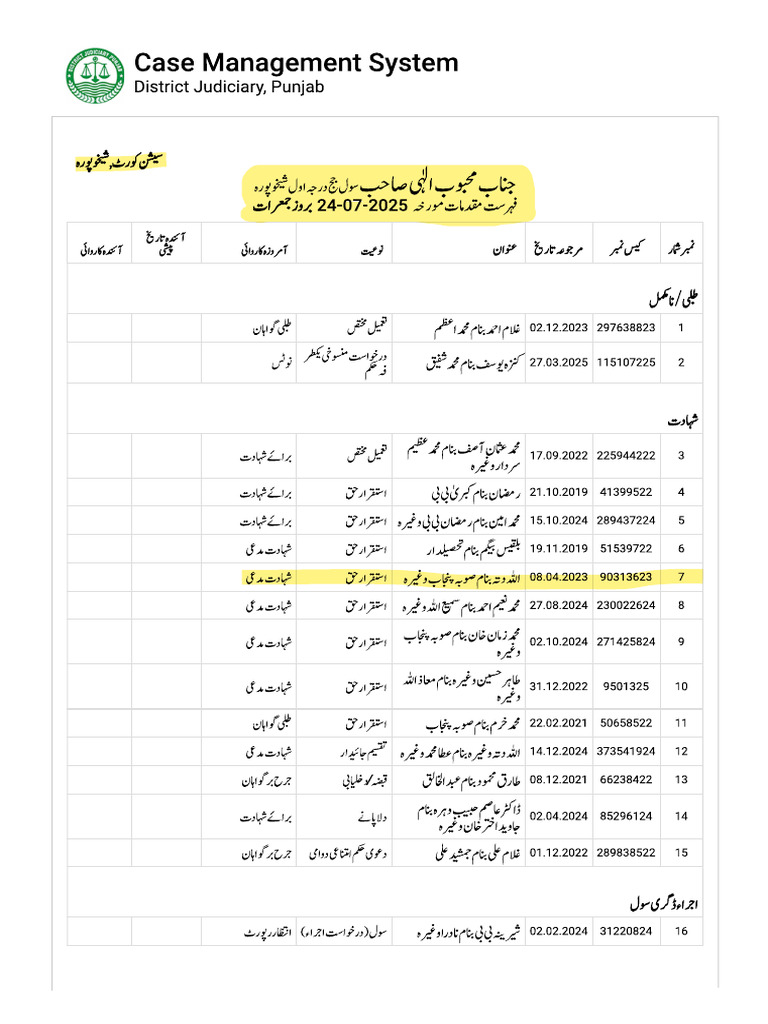 Case Management System
District Judiciary, Punjab
سیشن کورٹ, شیخوپورہ
جناب محبوب الٰہی صاحب سول جج درجہ اول شیخوپورہ
فہرست مقدمات مورخہ 2025-07-24 بروز جمعرات
نمبر شمار کیس نمبر مرجوعہ تاریخ عنوان نوعیت آمروزہ کاروائی آئندہ تاریخ پیشی آئندہ کاروائی
طلبی/نامکمل
1 297638823 02.12.2023 غلام احمد بنام محمد اعظم تعمیل مختص طلبی گواہان
2 115107225 27.03.2025 کنزہ یوسف بنام محمد شفیق درخواست منسوخی یکطرفہ حکم نوٹس
شہادت
3 225944222 17.09.2022 محمد عثمان آصف بنام محمد عظیم سردار وغیرہ تعمیل مختص برائے شہادت
4 41399522 21.10.2019 رمضان بنام کبریٰ بی بی استقرار حق برائے شہادت
5 289437224 15.10.2024 محمد امین بنام رمضان بی بی وغیرہ استقرار حق برائے شہادت
6 51539722 19.11.2019 بلقیس بیگم بنام تحصیلدار استقرار حق شہادت مدعی
7 90313623 08.04.2023 اللہ دتہ بنام صوبہ پنجاب وغیرہ استقرار حق شہادت مدعی
8 230022624 27.08.2024 محمد نعیم احمد بنام سمیع اللہ وغیرہ استقرار حق شہادت مدعی
9 271425824 02.10.2024 محمد زمان خان بنام صوبہ پنجاب وغیرہ استقرار حق شہادت مدعی
10 9501325 31.12.2022 طاہر حسین وغیرہ بنام معاذ اللہ وغیرہ استقرار حق شہادت مدعی
11 50658522 22.02.2021 محمد خرم بنام صوبہ پنجاب استقرار حق طلبی گواہان
12 373541924 14.12.2024 اللہ دتہ وغیرہ بنام عطا محمد وغیرہ تقسیم جائیدار شہادت مدعی
13 66238422 08.12.2021 طارق محمود بنام عبدالخالق قبضہ/دخلیابی جرح بر گواہان
14 85296124 02.04.2024 ڈاکٹر عاصم حبیب وہرہ بنام جاوید اختر خان وغیرہ دلاپانے برائے شہادت
15 289838522 01.12.2022 غلام علی بنام جمشید علی دعوی حکم امتناعی دوامی جرح بر گواہان
اجراء ڈگری سول
16 31220824 02.02.2024 شیرینہ بی بی بنام نادرا وغیرہ سول(درخواست اجراء) انتظار رپورٹ